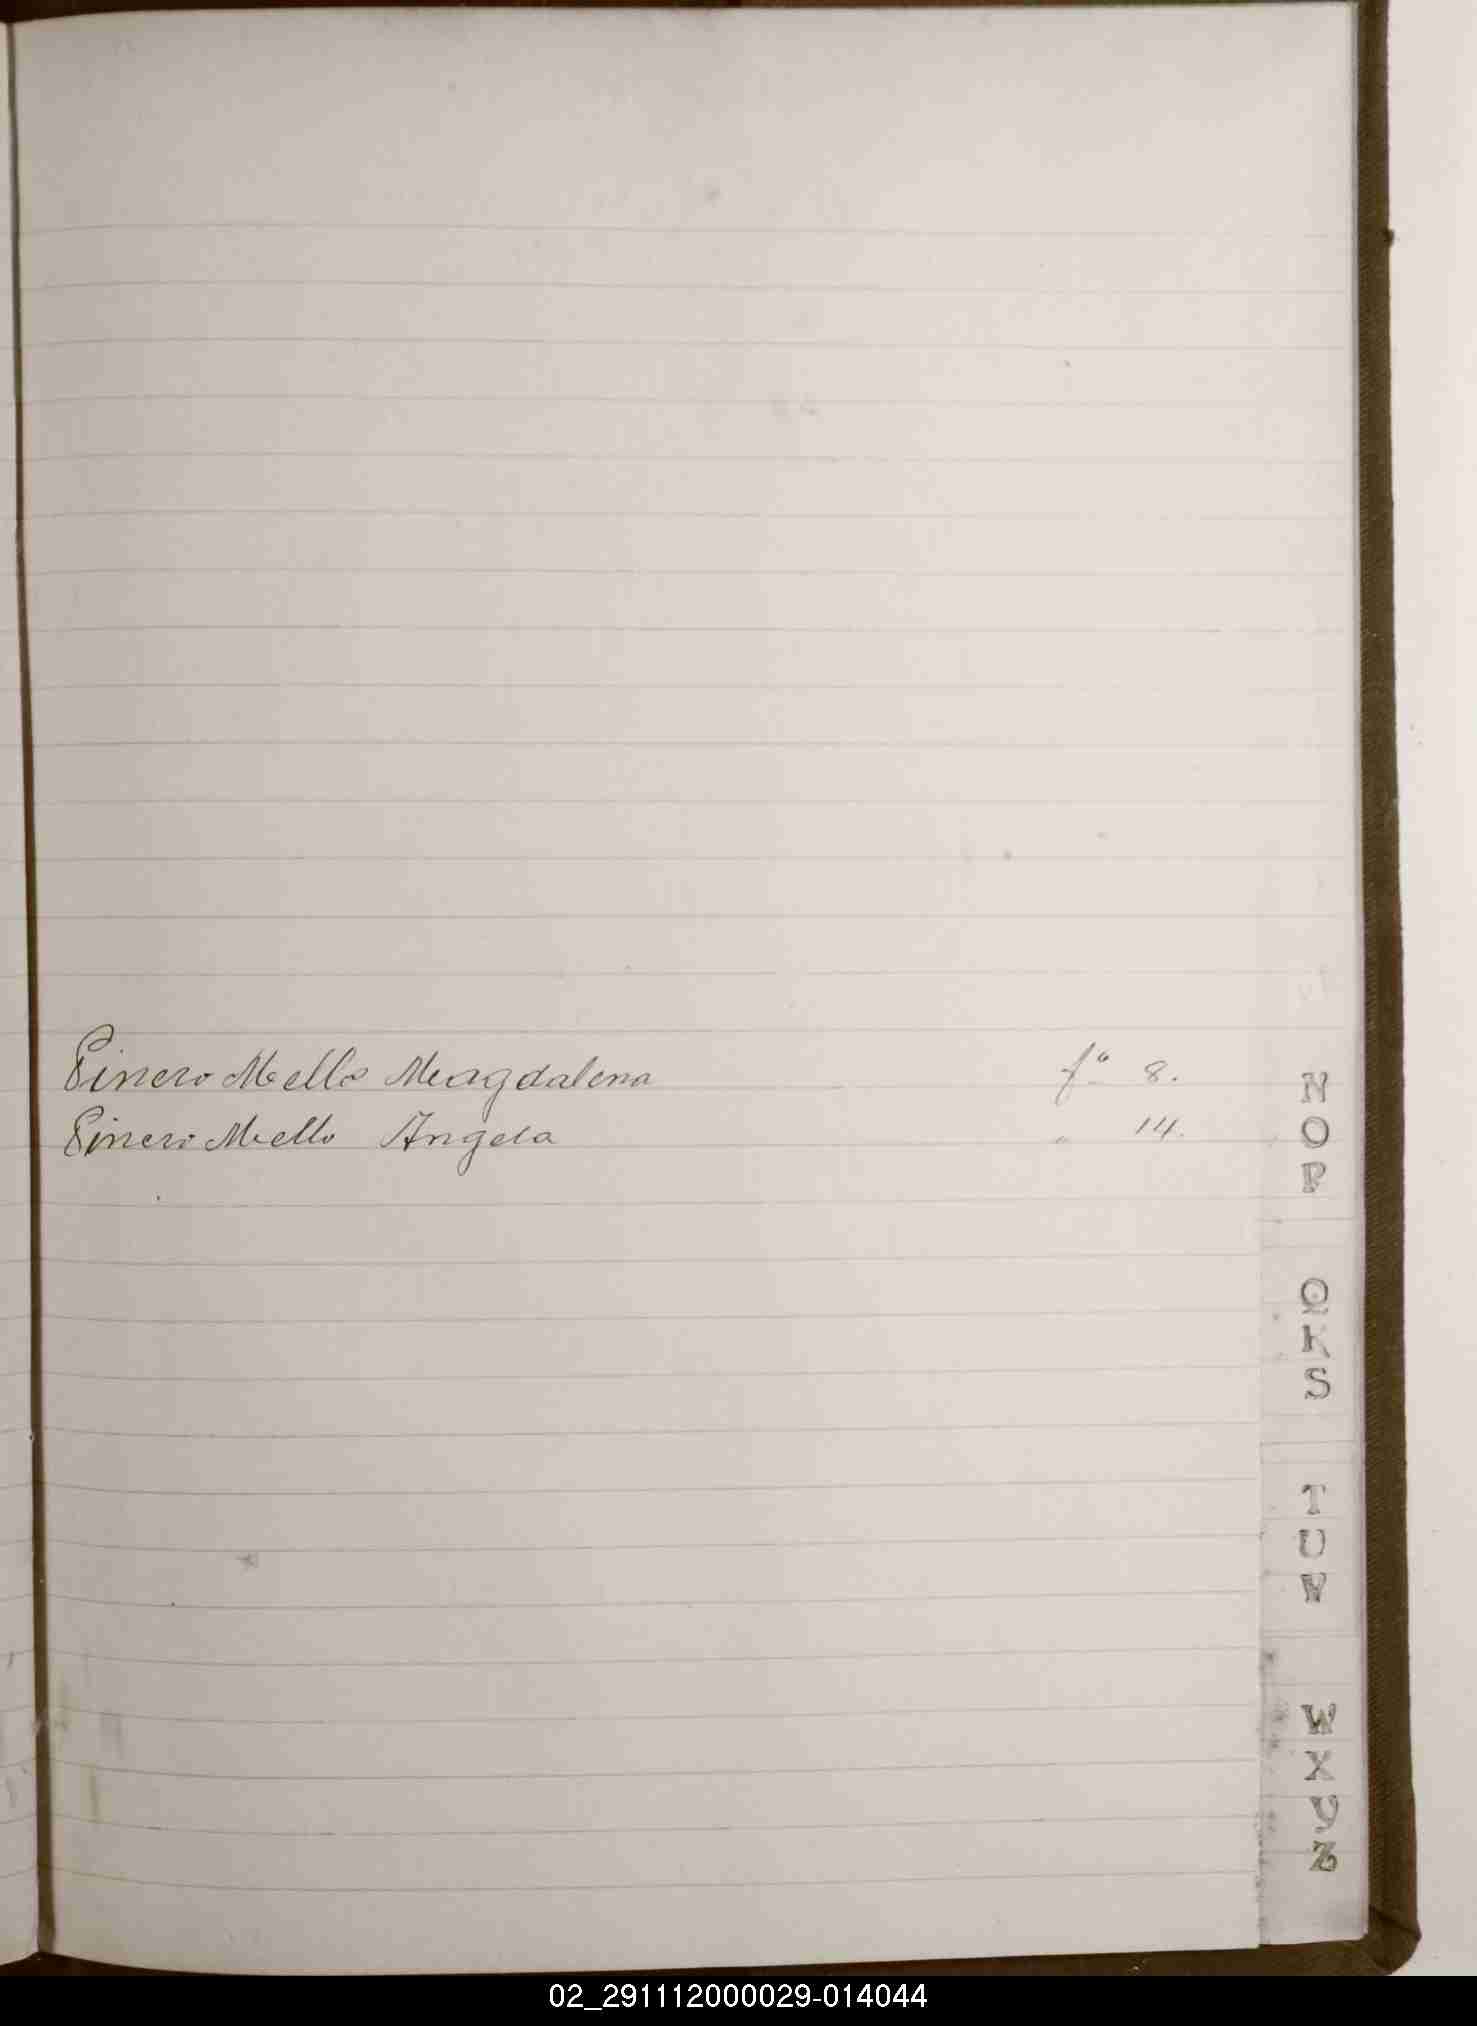 Pinero Mello Magdalena fº 8.
Pinero Mello Angela " 14.
N
O
P
Q
R
S
T
U
V
W
X
Y
Z
02_291112000029-014044